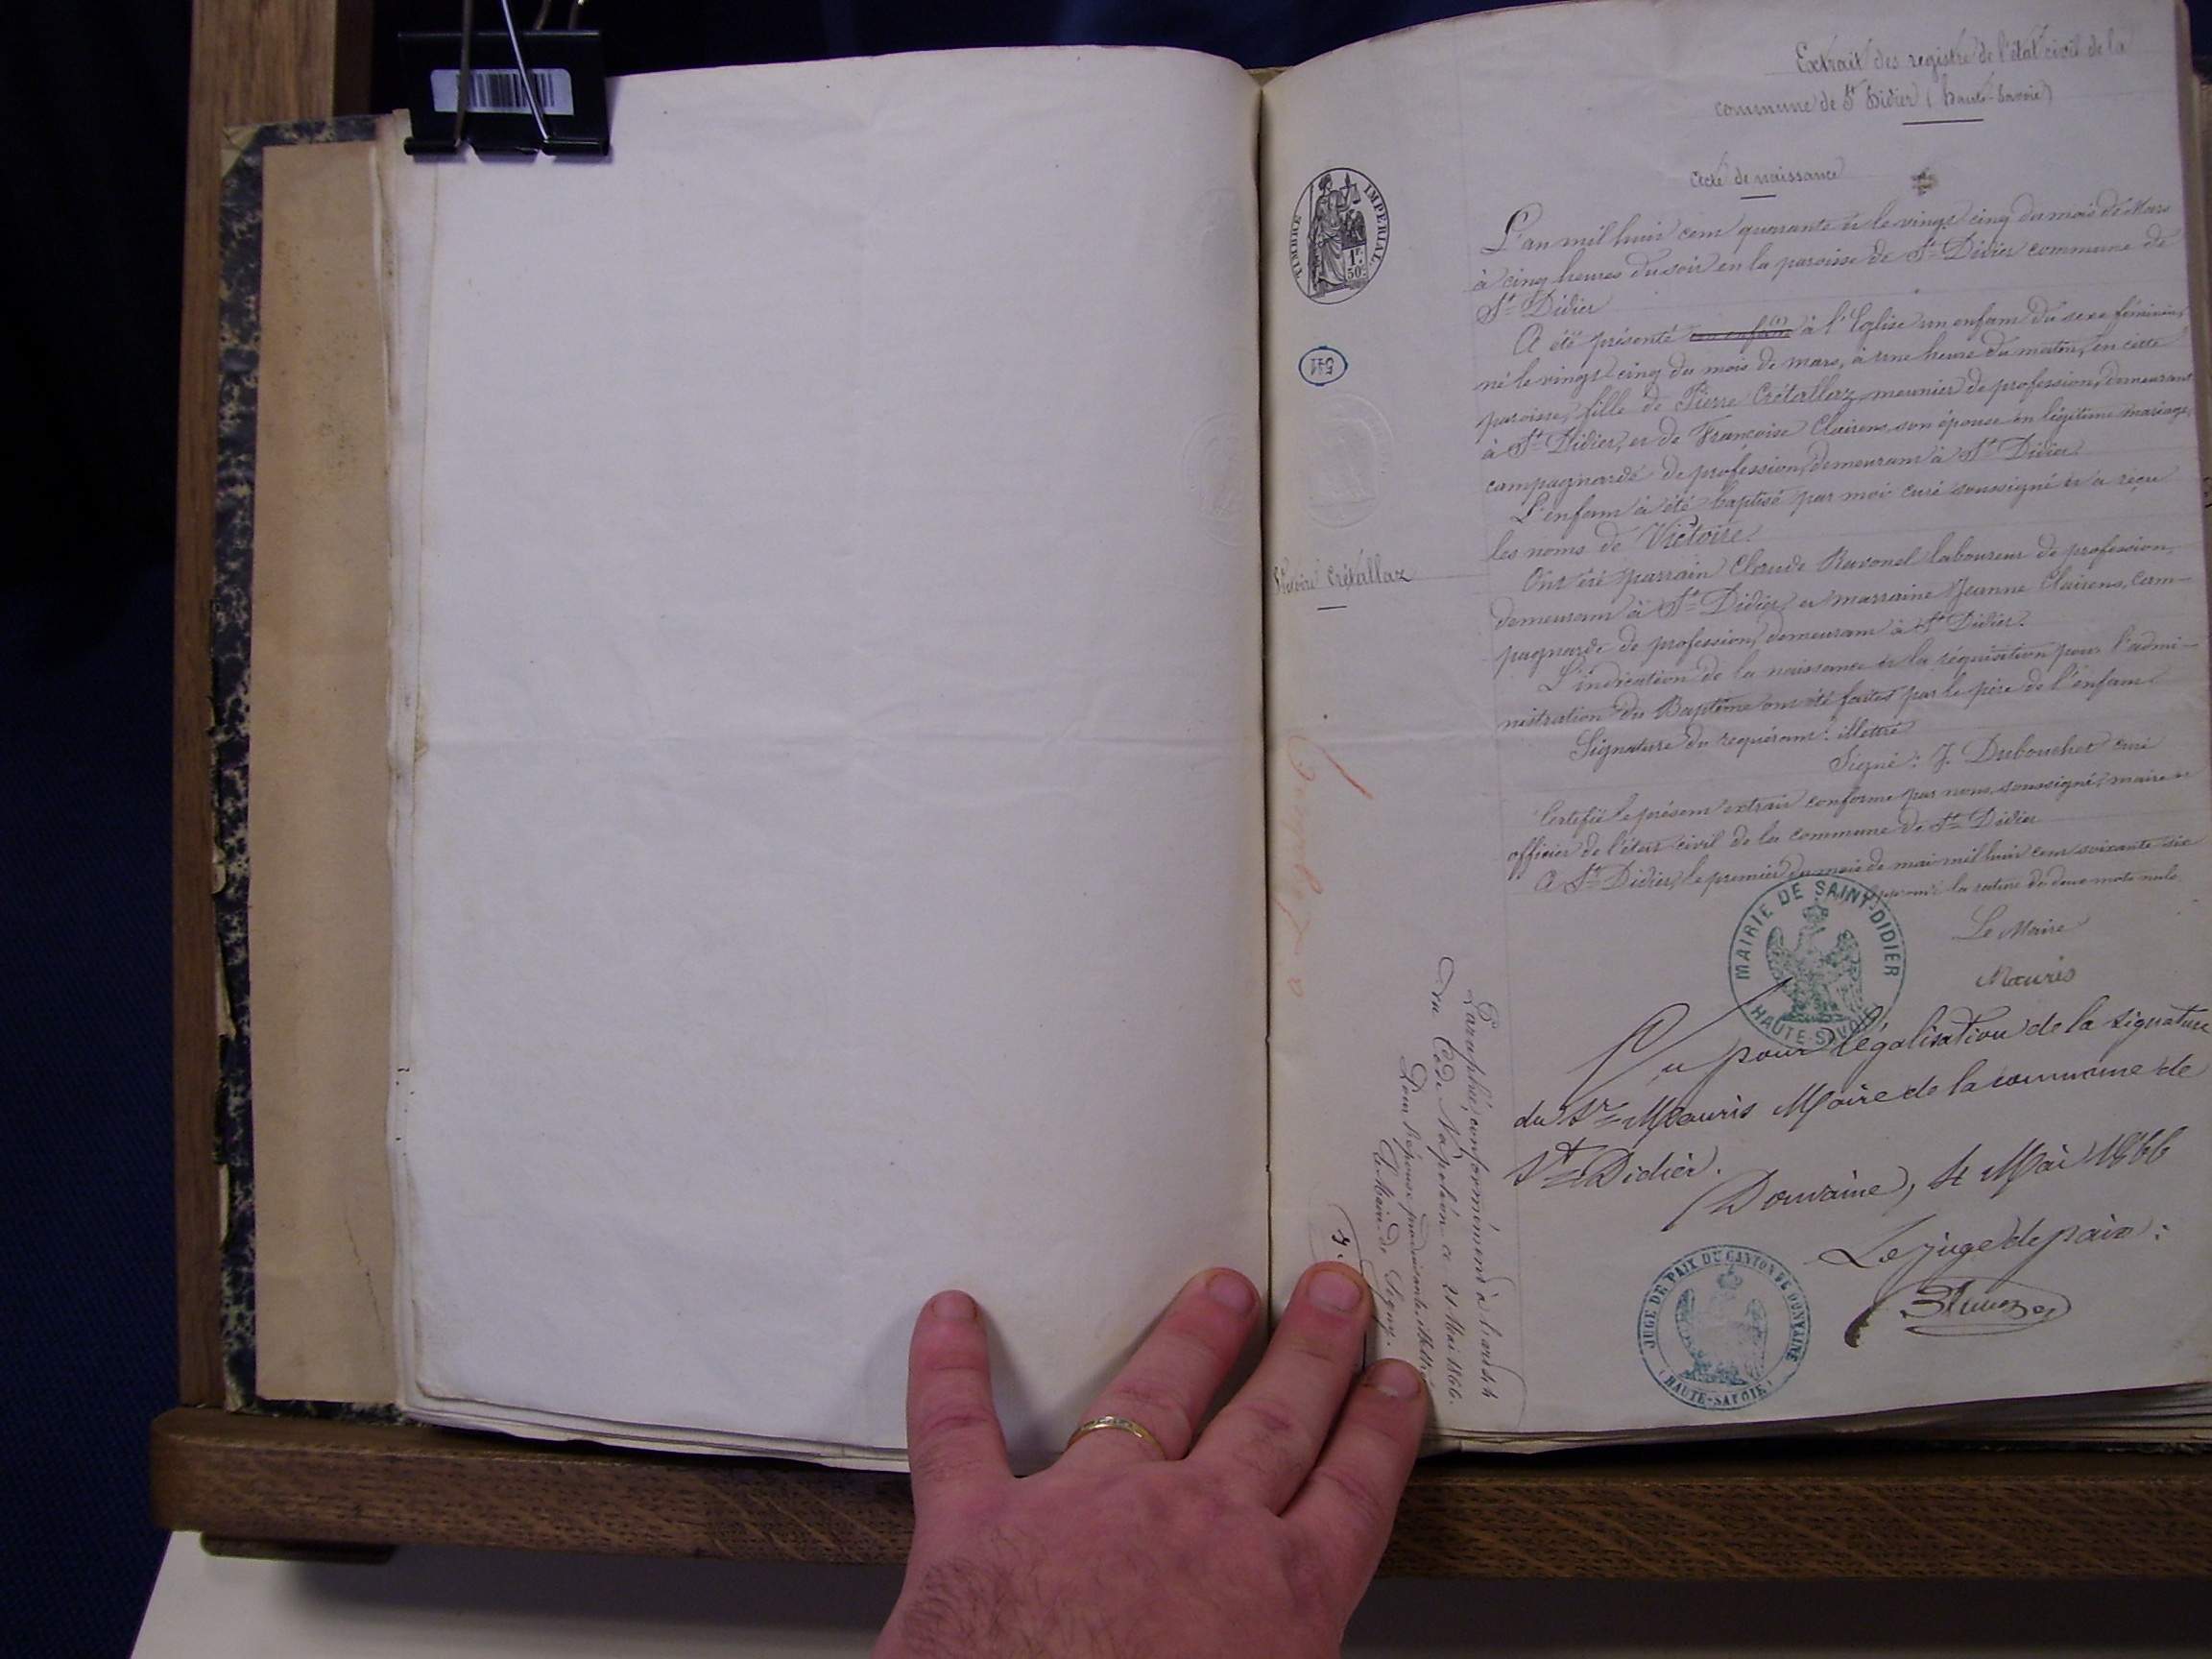 Extrait des registre de l'état civil de la
commune de St Didier (haute-Savoie)
Acte de naissance
TIMBRE IMPÉRIAL
1f.
50c.
541
Victoire Crétallaz
L'an mil huit cent quarante et le vingt cinq du mois de Mars
à cinq heures du soir en la paroisse de St Didier commune de
St Didier
A été présenté un enfant (1) à l'Eglise un enfant du sexe féminin,
né le vingt cinq du mois de mars, à une heure du matin, en cette
paroisse, fille de Pierre Crétallaz, meunier de profession, demeurant
à St Didier, et de Françoise Clairens son épouse en légitime mariage,
campagnarde de profession, demeurant à St Didier.
L'enfant a été baptisé par moi curé soussigné et a reçu
les noms de Victoire.
Ont été parrain Claude Ravonel laboureur de profession,
demeurant à St Didier, et marraine Jeanne Clairens, cam-
pagnarde de profession, demeurant à St Didier.
L'indication de la naissance et la réquisition pour l'admi-
nistration du Baptême ont été faites par le père de l'enfant
Signature du requérant: illettré
Signé: J. Dubouchet curé
Certifié le présent extrait conforme par nous, soussigné, maire et
officier de l'état civil de la commune de St Didier
A St Didier, le premier du mois de mai mil huit cent soixante six
la rature de deux mots nuls.
Le Maire
Mauris
MAIRIE DE SAINT-DIDIER
HAUTE-SAVOIE
Vu pour légalisation de la signature
du Sr Mauris Maire de la commune de
St Didier.
Douvaine, 4 Mai 1866
Le juge de paix:
JUGE DE PAIX DU CANTON DE DOUVAINE
(HAUTE-SAVOIE)
Paraphé, conformément à l'art. 44
du Code Napoléon ce 21 Mai 1866.
Pour l'épouse produisante illettrée
Le Maire de Segny.